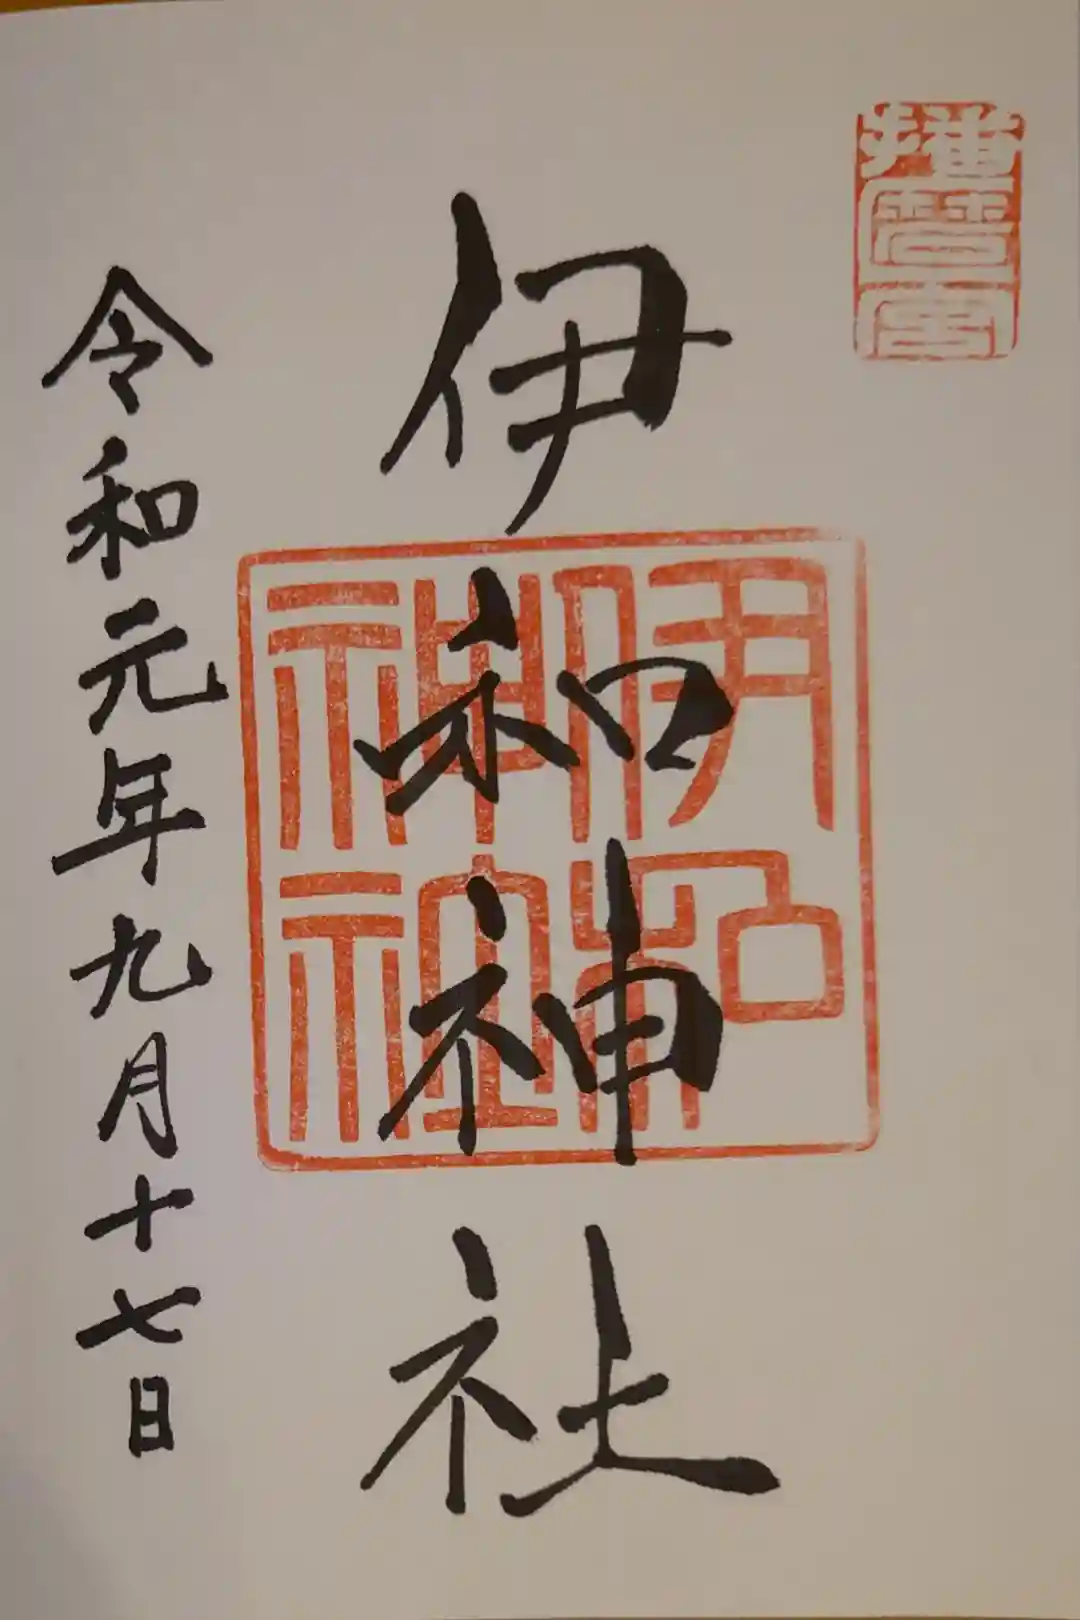 播磨一宮
伊和神社
伊和
神社
令和元年九月十七日